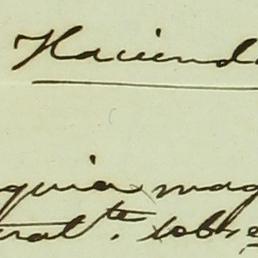 Haciend
quia mag
ralte. sobre